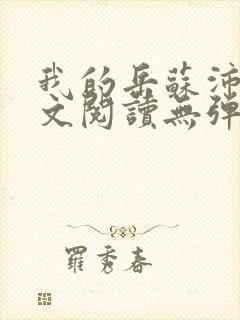 我的岳蘇沛
文閱讀無彈
羅秀春